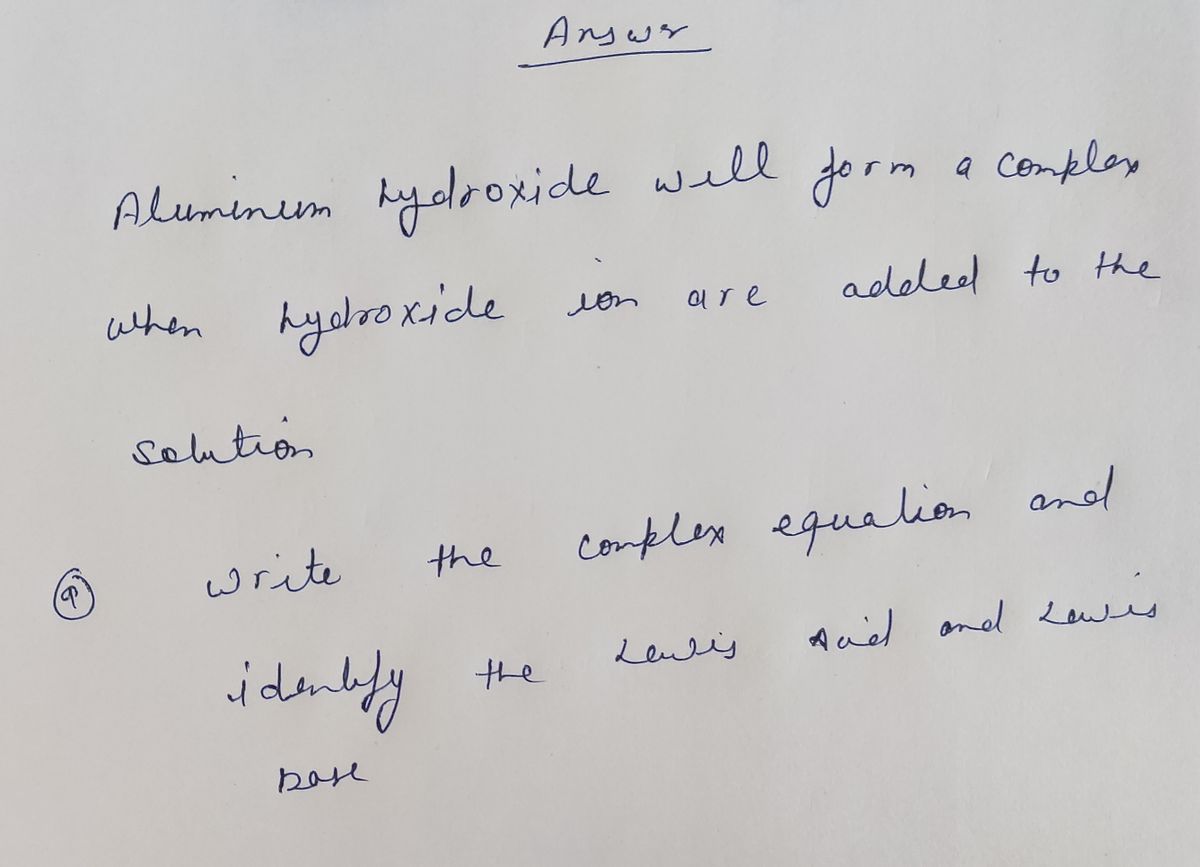 Answr
Aluminum hydroxide will form a complex
when hydroxide ion are added to the
solution
write the complex equation and
identify the Lewis Acid and Lewis
Base